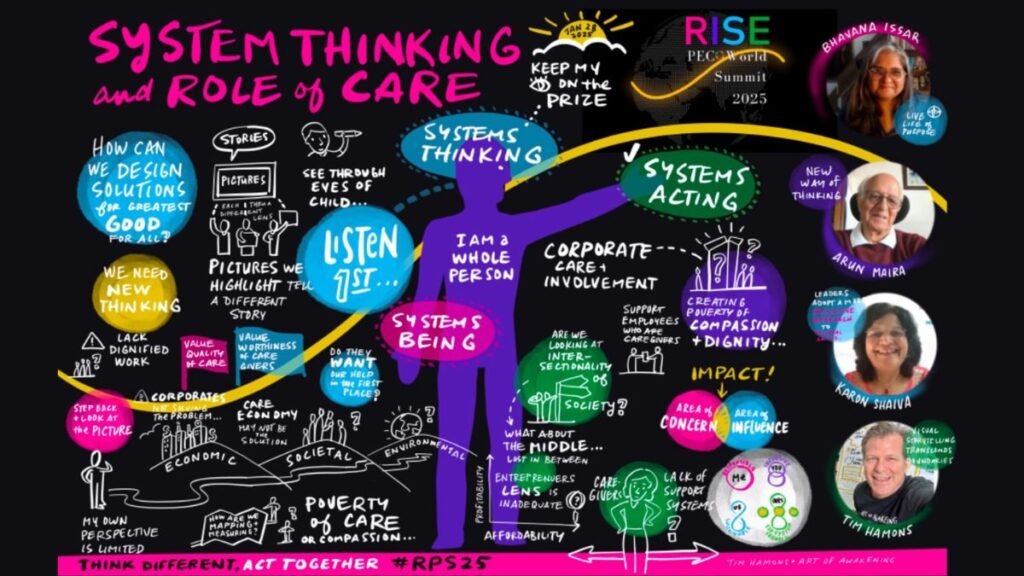 SYSTEM THINKING
and ROLE of CARE
JAN 28
2025
KEEP MY
ON the
PRIZE
RISE
PECOWorld
Summit
2025
BHAVANA ISSAR
LIVE
LIFE of
PURPOSE
HOW CAN
WE DESIGN
SOLUTIONS
for GREATEST
GOOD
FOR ALL?
STORIES
PICTURES
EACH THRU A
DIFFERENT LENS
PICTURES WE
HIGHLIGHT TELL
A DIFFERENT
STORY
SEE THROUGH
EYES OF
CHILD...
SYSTEMS
THINKING
SYSTEMS
ACTING
NEW
WAY of
THINKING
ARUN MAIRA
LISTEN
1ST...
I AM a
WHOLE
PERSON
CORPORATE
CARE +
INVOLVEMENT
CREATING
POVERTY OF
COMPASSION
+ DIGNITY...
WE NEED
NEW
THINKING
SYSTEMS
BEING
SUPPORT
EMPLOYEES
WHO ARE
CAREGIVERS
LEADERS
ADOPT A
TO
KARON SHAIVA
LACK
DIGNIFIED
WORK
VALUE
QUALITY
OF CARE
VALUE
WORTHINESS
OF CARE
GIVERS
DO THEY
WANT
OUR HELP
in the FIRST
PLACE?
ARE WE
LOOKING AT
INTER-
SECTIONALITY
OF
SOCIETY?
IMPACT!
AREA of
CONCERN
AREA of
INFLUENCE
STEP BACK
+ LOOK AT
the PICTURE
CORPORATES
NOT SOLVING
THE PROBLEM...
CARE
ECONOMY
MAY NOT BE
THE SOLUTION
ECONOMIC
SOCIETAL
ENVIRONMENTAL
WHAT ABOUT
THE MIDDLE...
LOST IN BETWEEN
VISUAL
STORYTELLING
TRANSCENDS
BOUNDARIES
TIM HAMONS
MY OWN
PERSPECTIVE
IS LIMITED
HOW ARE WE
MAPPING +
MEASURING?
POVERTY
of CARE
OR COMPASSION...
PROFITABILITY
ENTREPRENUERS
LENS IS
INADEQUATE
AFFORDABILITY
CARE-
GIVERS
LACK OF
SUPPORT
SYSTEMS
ME
YOU
US
THINK DIFFERENT, ACT TOGETHER #RPS25
TIM HAMONS + ART OF AWAKENING